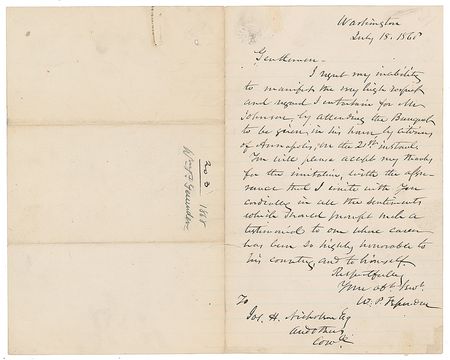 Washington
July 18. 1868
Gentlemen -
I regret my inability
to manifest the very high respect
and regard I entertain for Mr
Johnson, by attending the Banquet
to be given in his honor by citizens
of Annapolis, on the 21st instant.
You will please accept my thanks
for the invitation, with the assu-
rance that I unite with you
cordially in all the sentiments
which should prompt such a
testimonial to one whose career
has been so highly honorable to
his country, and to himself.
Respectfully
Your obt Servt.
W. P. Fessenden
To
Jos. H. Nicholson Esq
and others
Comtee
1868